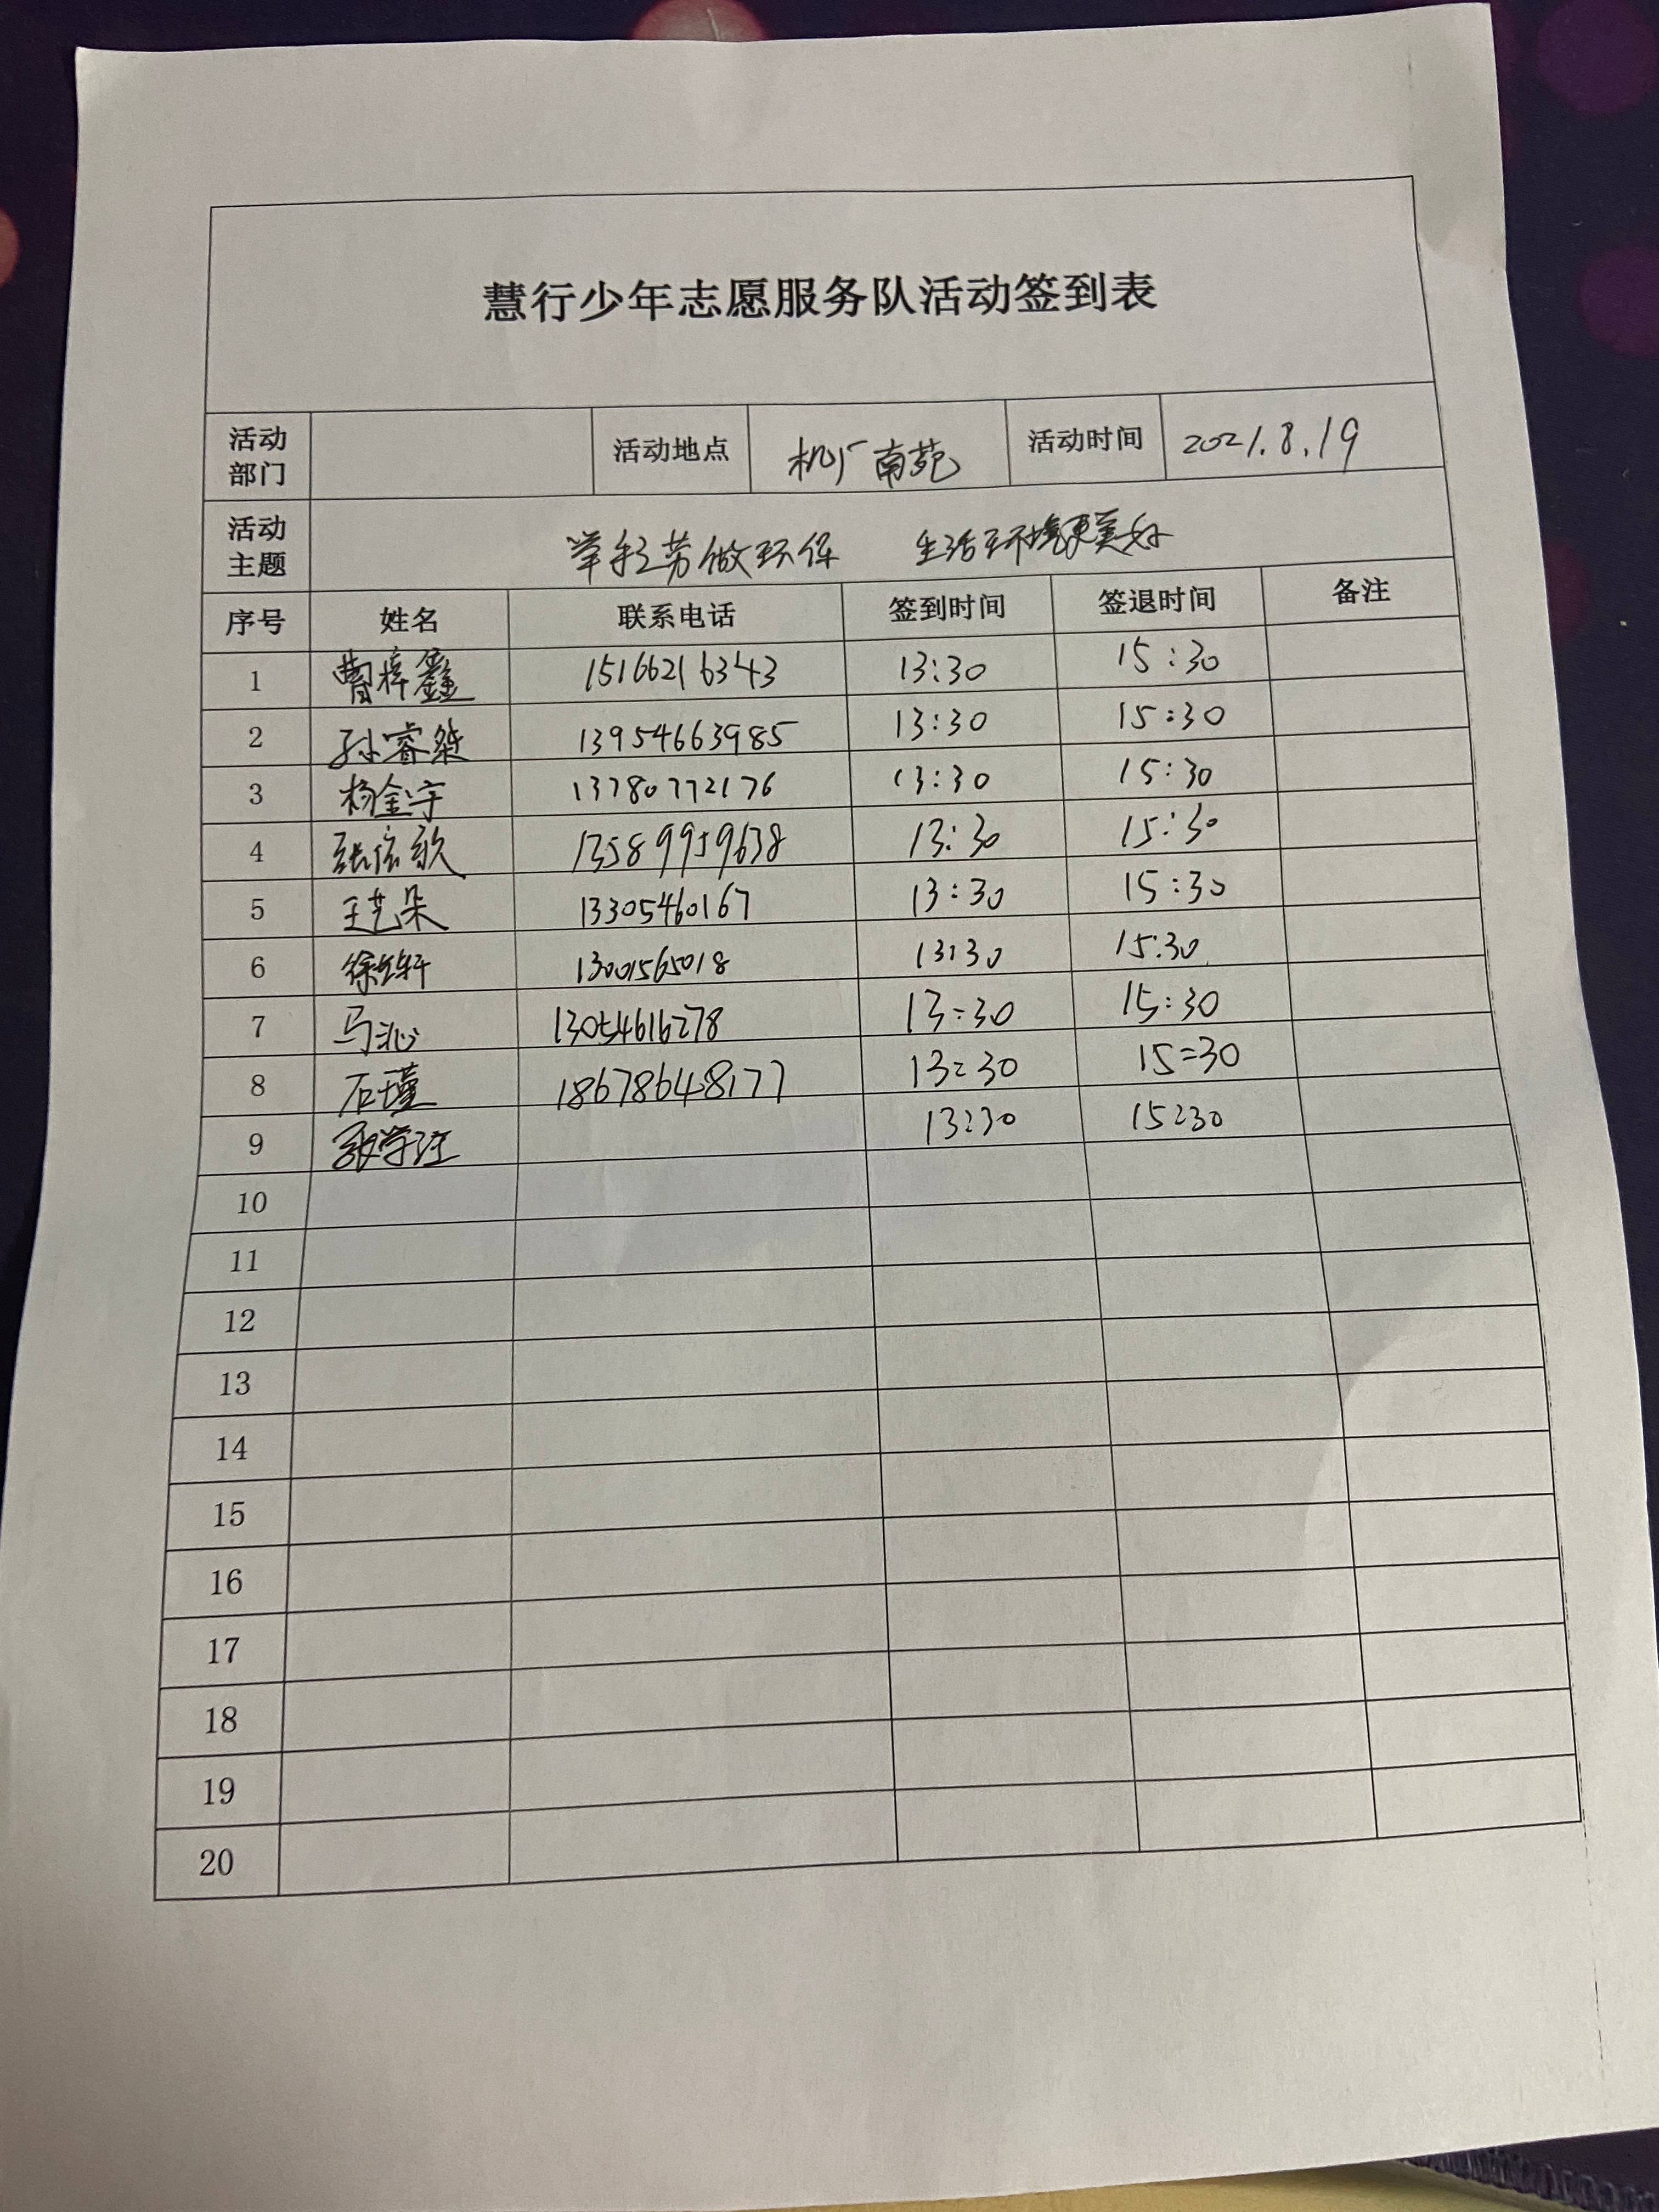 慧行少年志愿服务队活动签到表
活动部门 活动地点 机厂南苑 活动时间 2021.8.19
活动主题 举手之劳做环保 生活环境更美好
序号 姓名 联系电话 签到时间 签退时间 备注
1 曹梓鑫 15166216343 13:30 15:30
2 孙睿 13954663985 13:30 15:30
3 杨金宇 13780772176 13:30 15:30
4 13589959638 13:30 15:30
5 王艺朵 13305460167 13:30 15:30
6 13001565018 13:30 15:30
7 马沁 13054616278 13:30 15:30
8 石瑾 18678648177 13:30 15:30
9 13:30 15:30
10
11
12
13
14
15
16
17
18
19
20